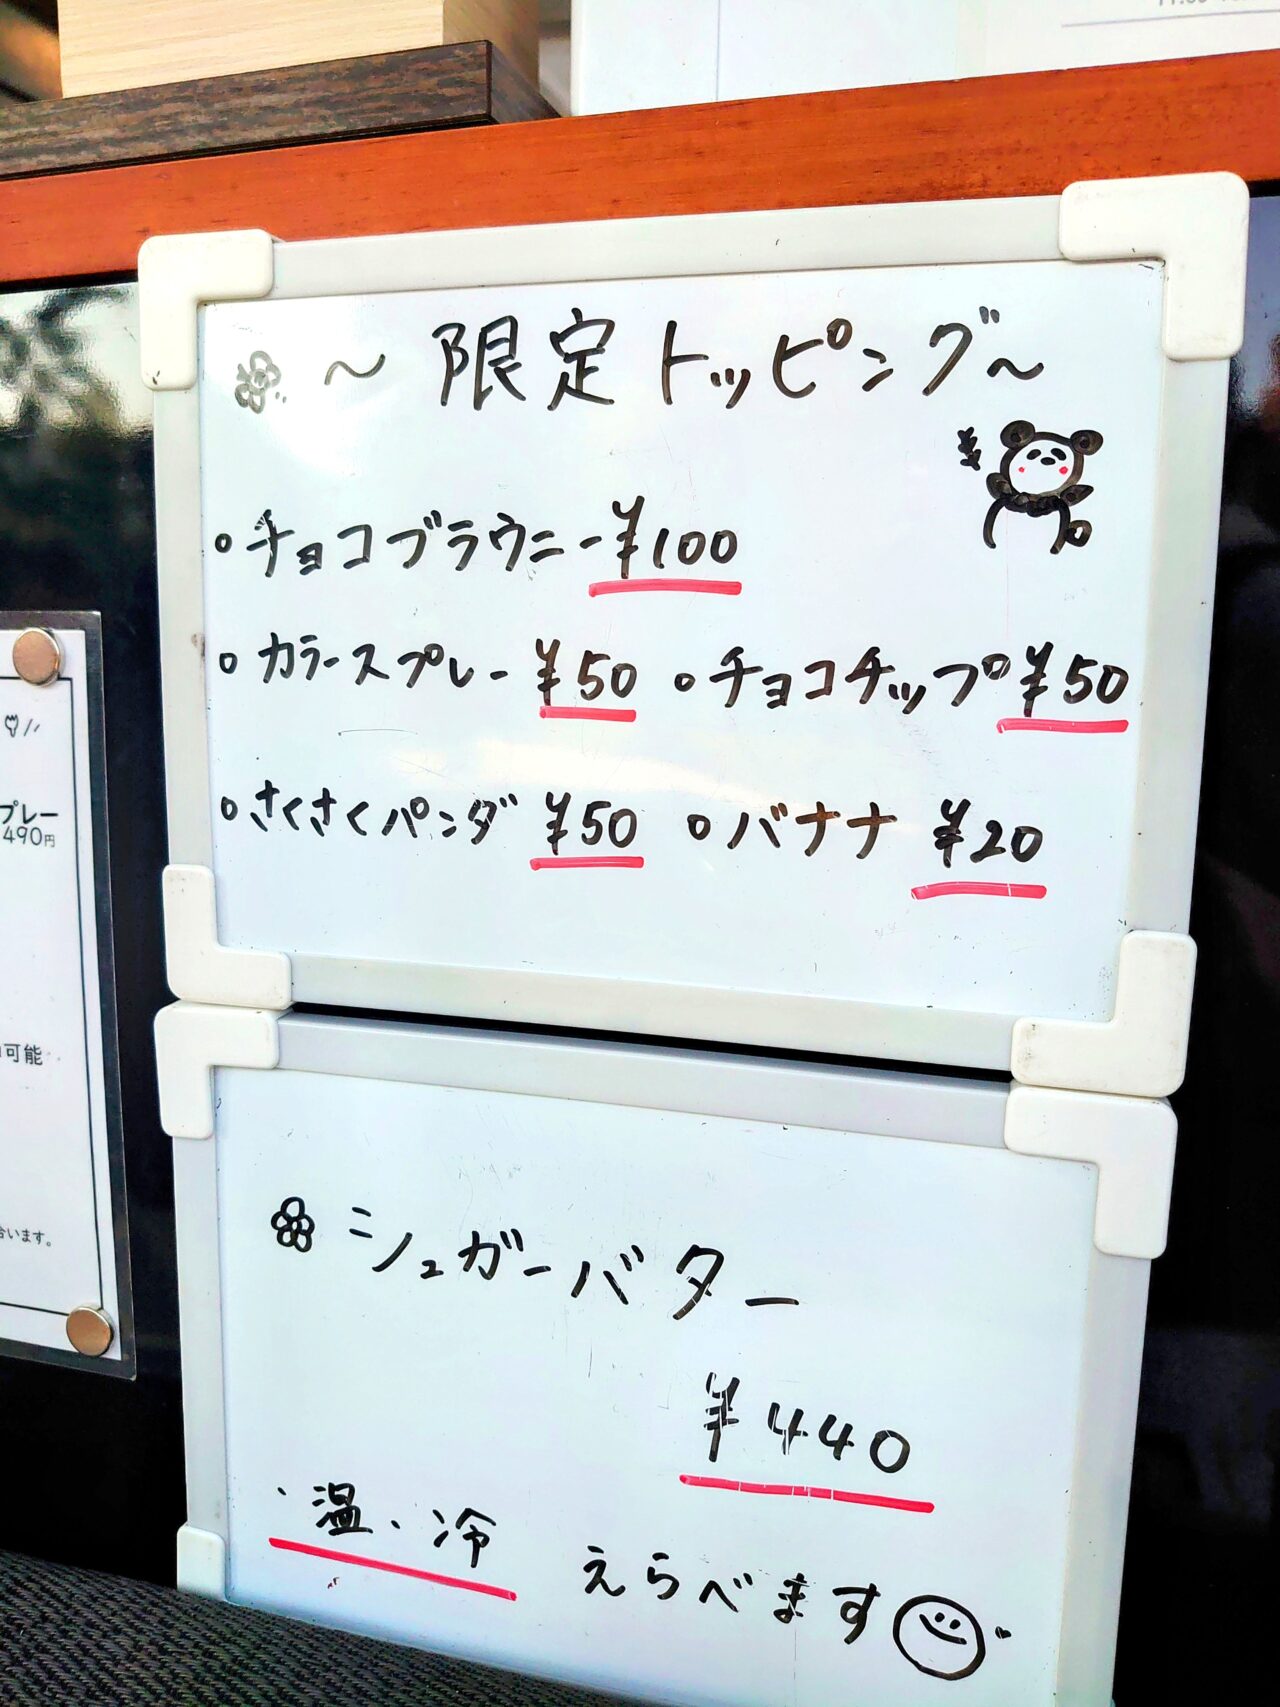 ～限定トッピング～
・チョコブラウニー ¥100
・カラースプレー ¥50 ・チョコチップ ¥50
・さくさくパンダ ¥50 ・バナナ ¥20
シュガーバター
¥440
・温・冷 えらべます
プレー
490円
可能
います。